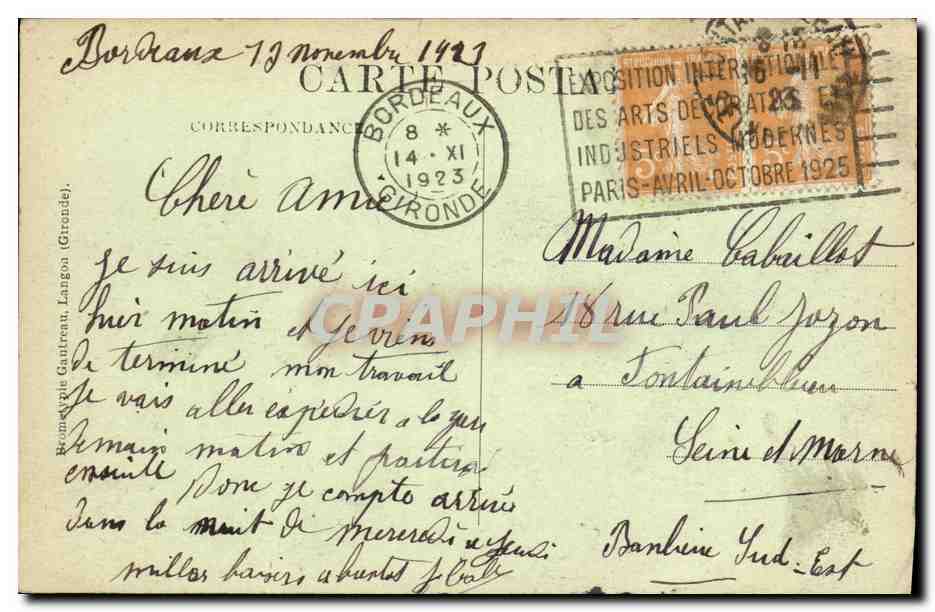 Bordeaux 13 novembre 1923
CARTE POSTA
CORRESPONDANCE
BORDEAUX
8 *
14 · XI
1923
GIRONDE
8
16 11
23
EXPOSITION INTERNATIONALE
DES ARTS DECORATIFS ET
INDUSTRIELS MODERNES
PARIS-AVRIL-OCTOBRE 1925
Chère Amie
Je suis arrivé ici
hier matin et je viens
de terminé mon travail
Je vais aller expédier a la gare
demain matin et partirai
ensuite Donc je compte arrivé
dans la nuit de mercredi a jeudi
milles baisers a bientot
Madame Cabaillot
18 rue Paul Jozon
a Fontainebleau
Seine et Marne
Banlieue Sud-Est
Bromotypie Gautreau, Langon (Gironde).
CPAPHIL